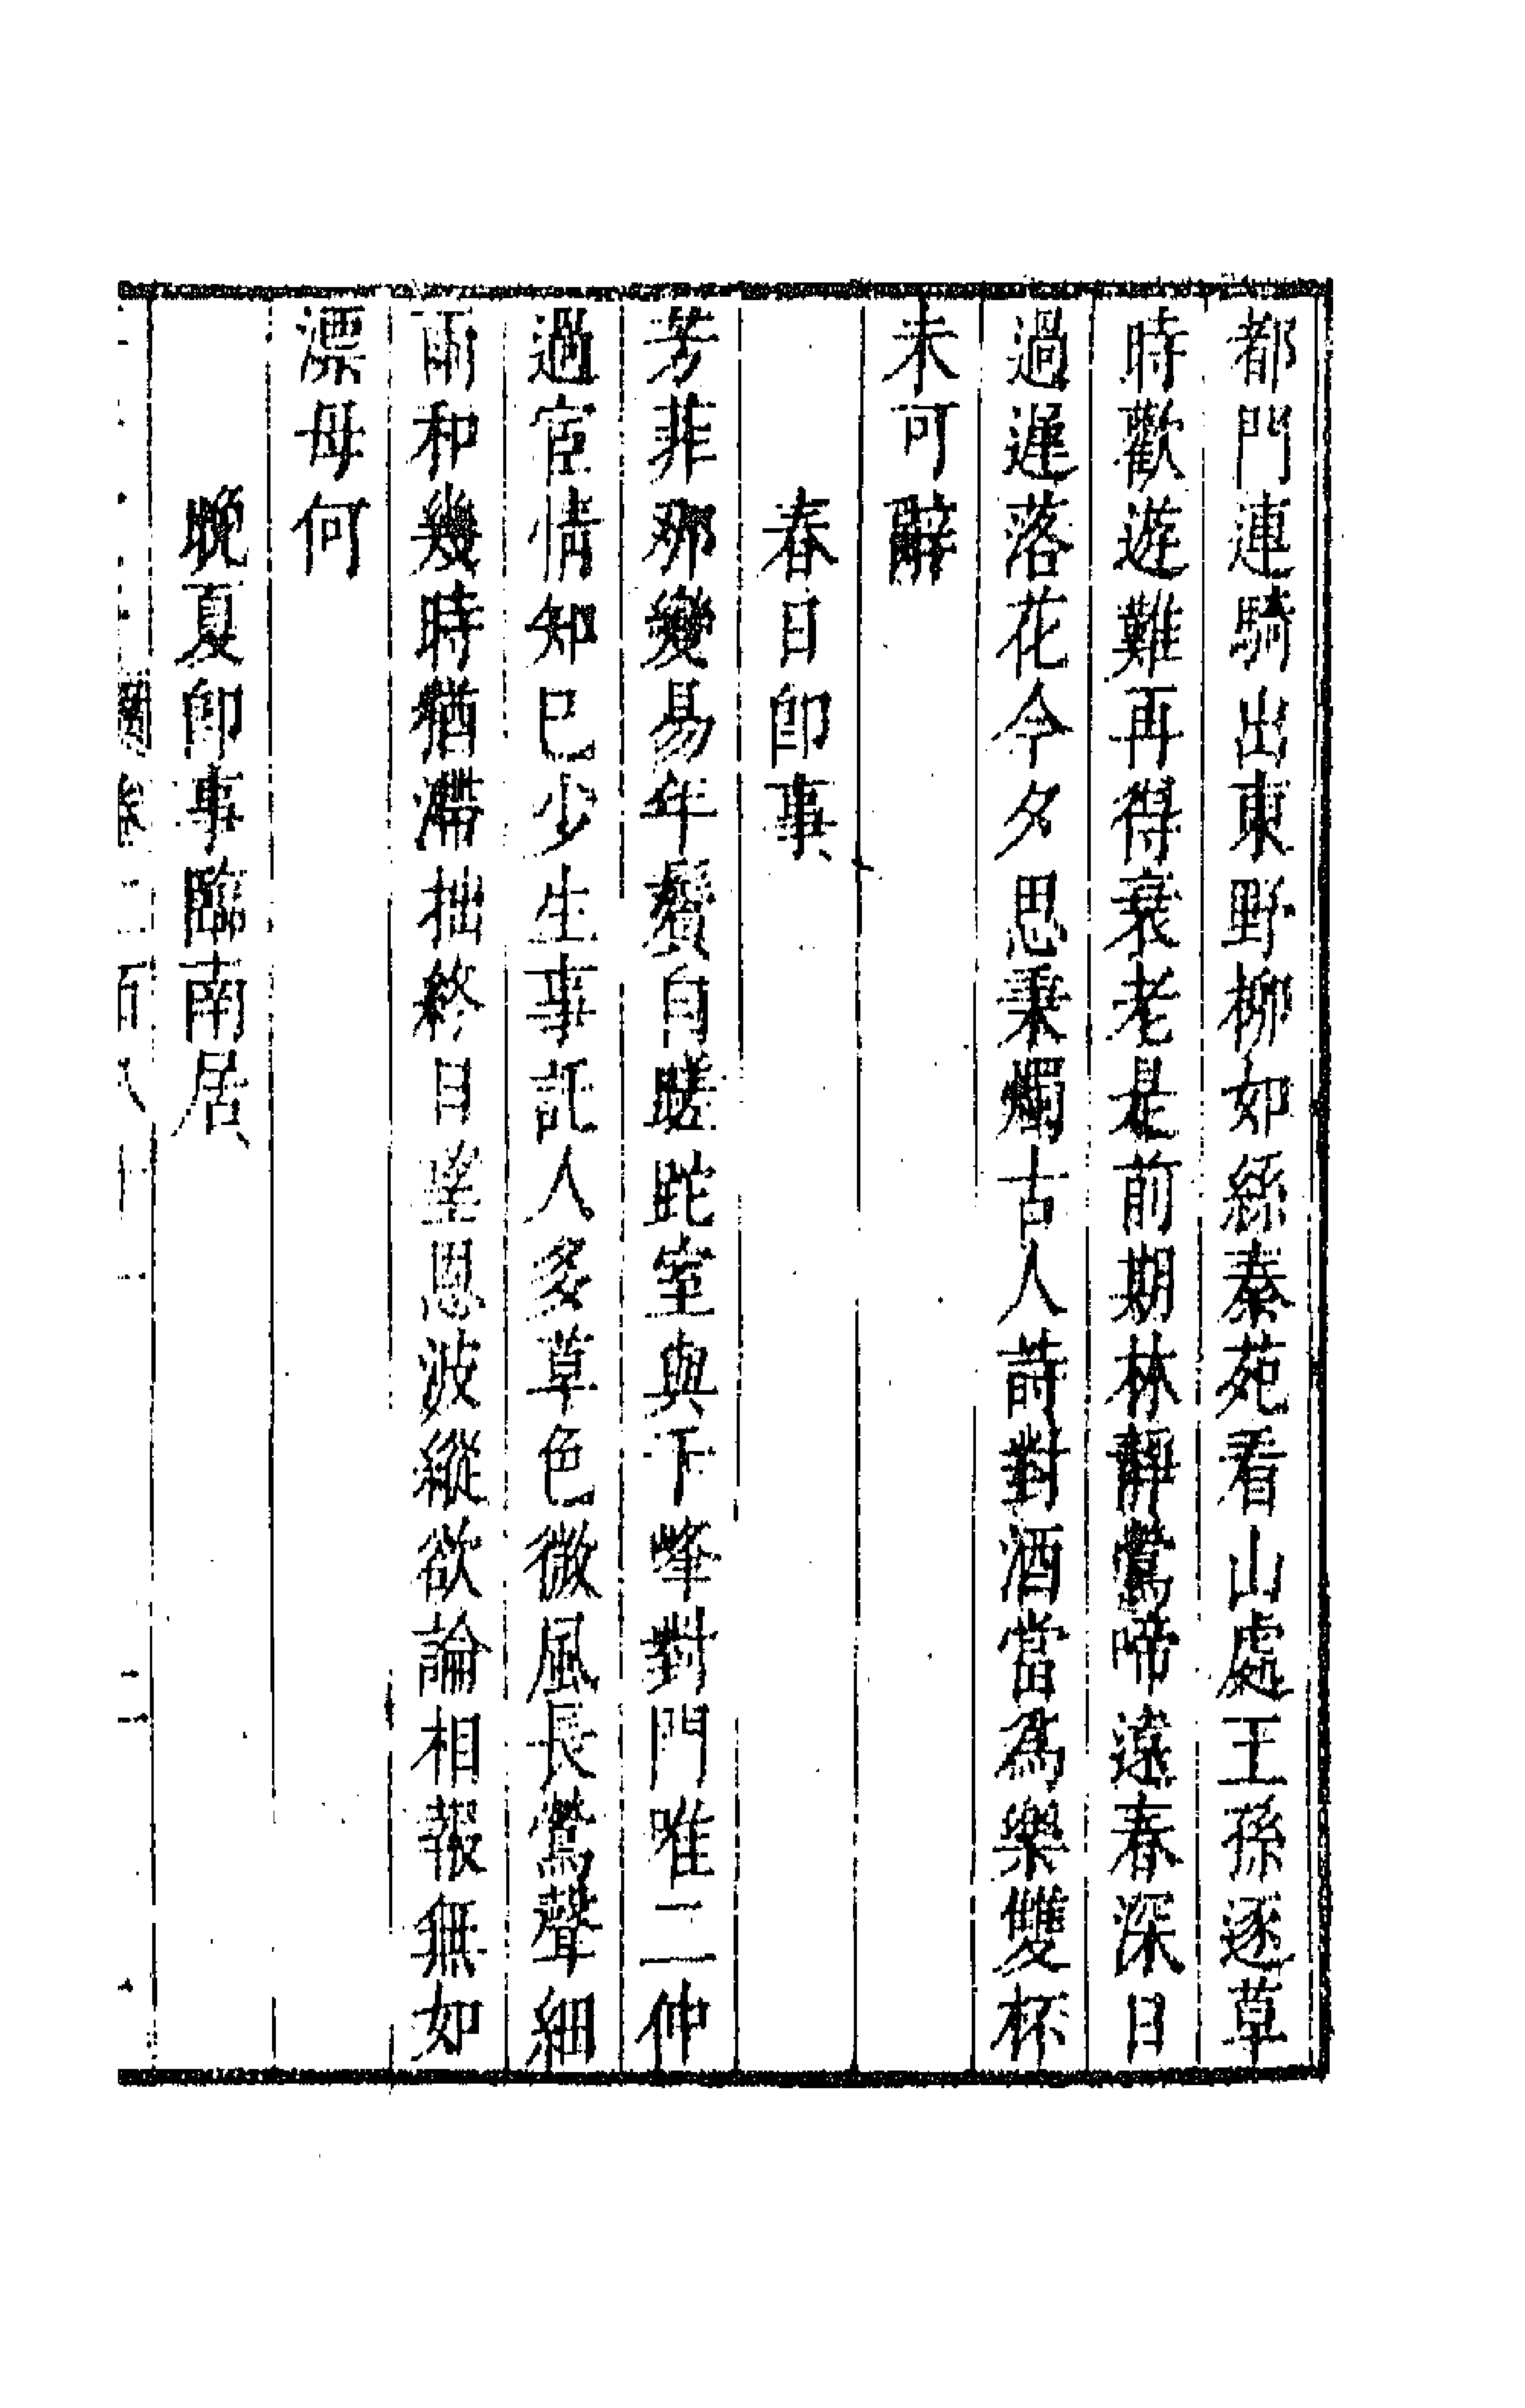 都門連騎出東野柳如絲秦苑看山處王孫逐草
時歡遊難再得衰老是前期林靜鶯啼遠春深日
過遲落花今夕思秉燭古人詩對酒當為樂雙杯
未可辭
春日卽事
芳菲那變易年鬢自蹉跎室與千峰對門唯二仲
過宦情知已少生事託人多草色微風長鶯聲細
雨和幾時猶滯拙終日望恩波縱欲論相報無如
漂母何
晚夏卽事臨南居
卷二百八十一
二